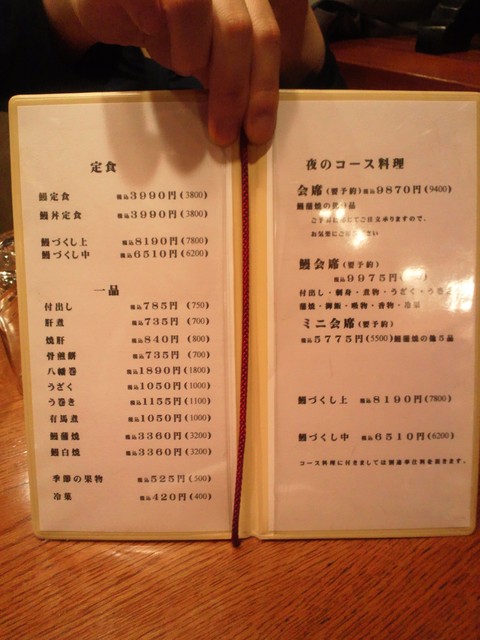 定食
鰻定食 税込3990円(3800)
鰻丼定食 税込3990円(3800)
鰻づくし上 税込8190円(7800)
鰻づくし中 税込6510円(6200)
一品
付出し 税込785円(750)
肝煮 税込735円(700)
焼肝 税込840円(800)
骨煎餅 税込735円(700)
八幡巻 税込1890円(1800)
うざく 税込1050円(1000)
う巻き 税込1155円(1100)
有馬煮 税込1050円(1000)
鰻蒲焼 税込3360円(3200)
鰻白焼 税込3360円(3200)
季節の果物 税込525円(500)
冷菓 税込420円(400)
夜のコース料理
会席(要予約)税込9870円(9400)
鰻蒲焼の他 品
ご予算に応じてご注文承りますので、
お気軽にご 下さい
鰻会席(要予約)
税込9975円
付出し・刺身・煮物・うざく・う巻
蒲焼・御飯・吸物・香物・冷菓
ミニ会席(要予約)
税込5775円(5500)鰻蒲焼の他5品
鰻づくし上 税込8190円(7800)
鰻づくし中 税込6510円(6200)
コース料理に付きましては別途奉仕料を頂きます。